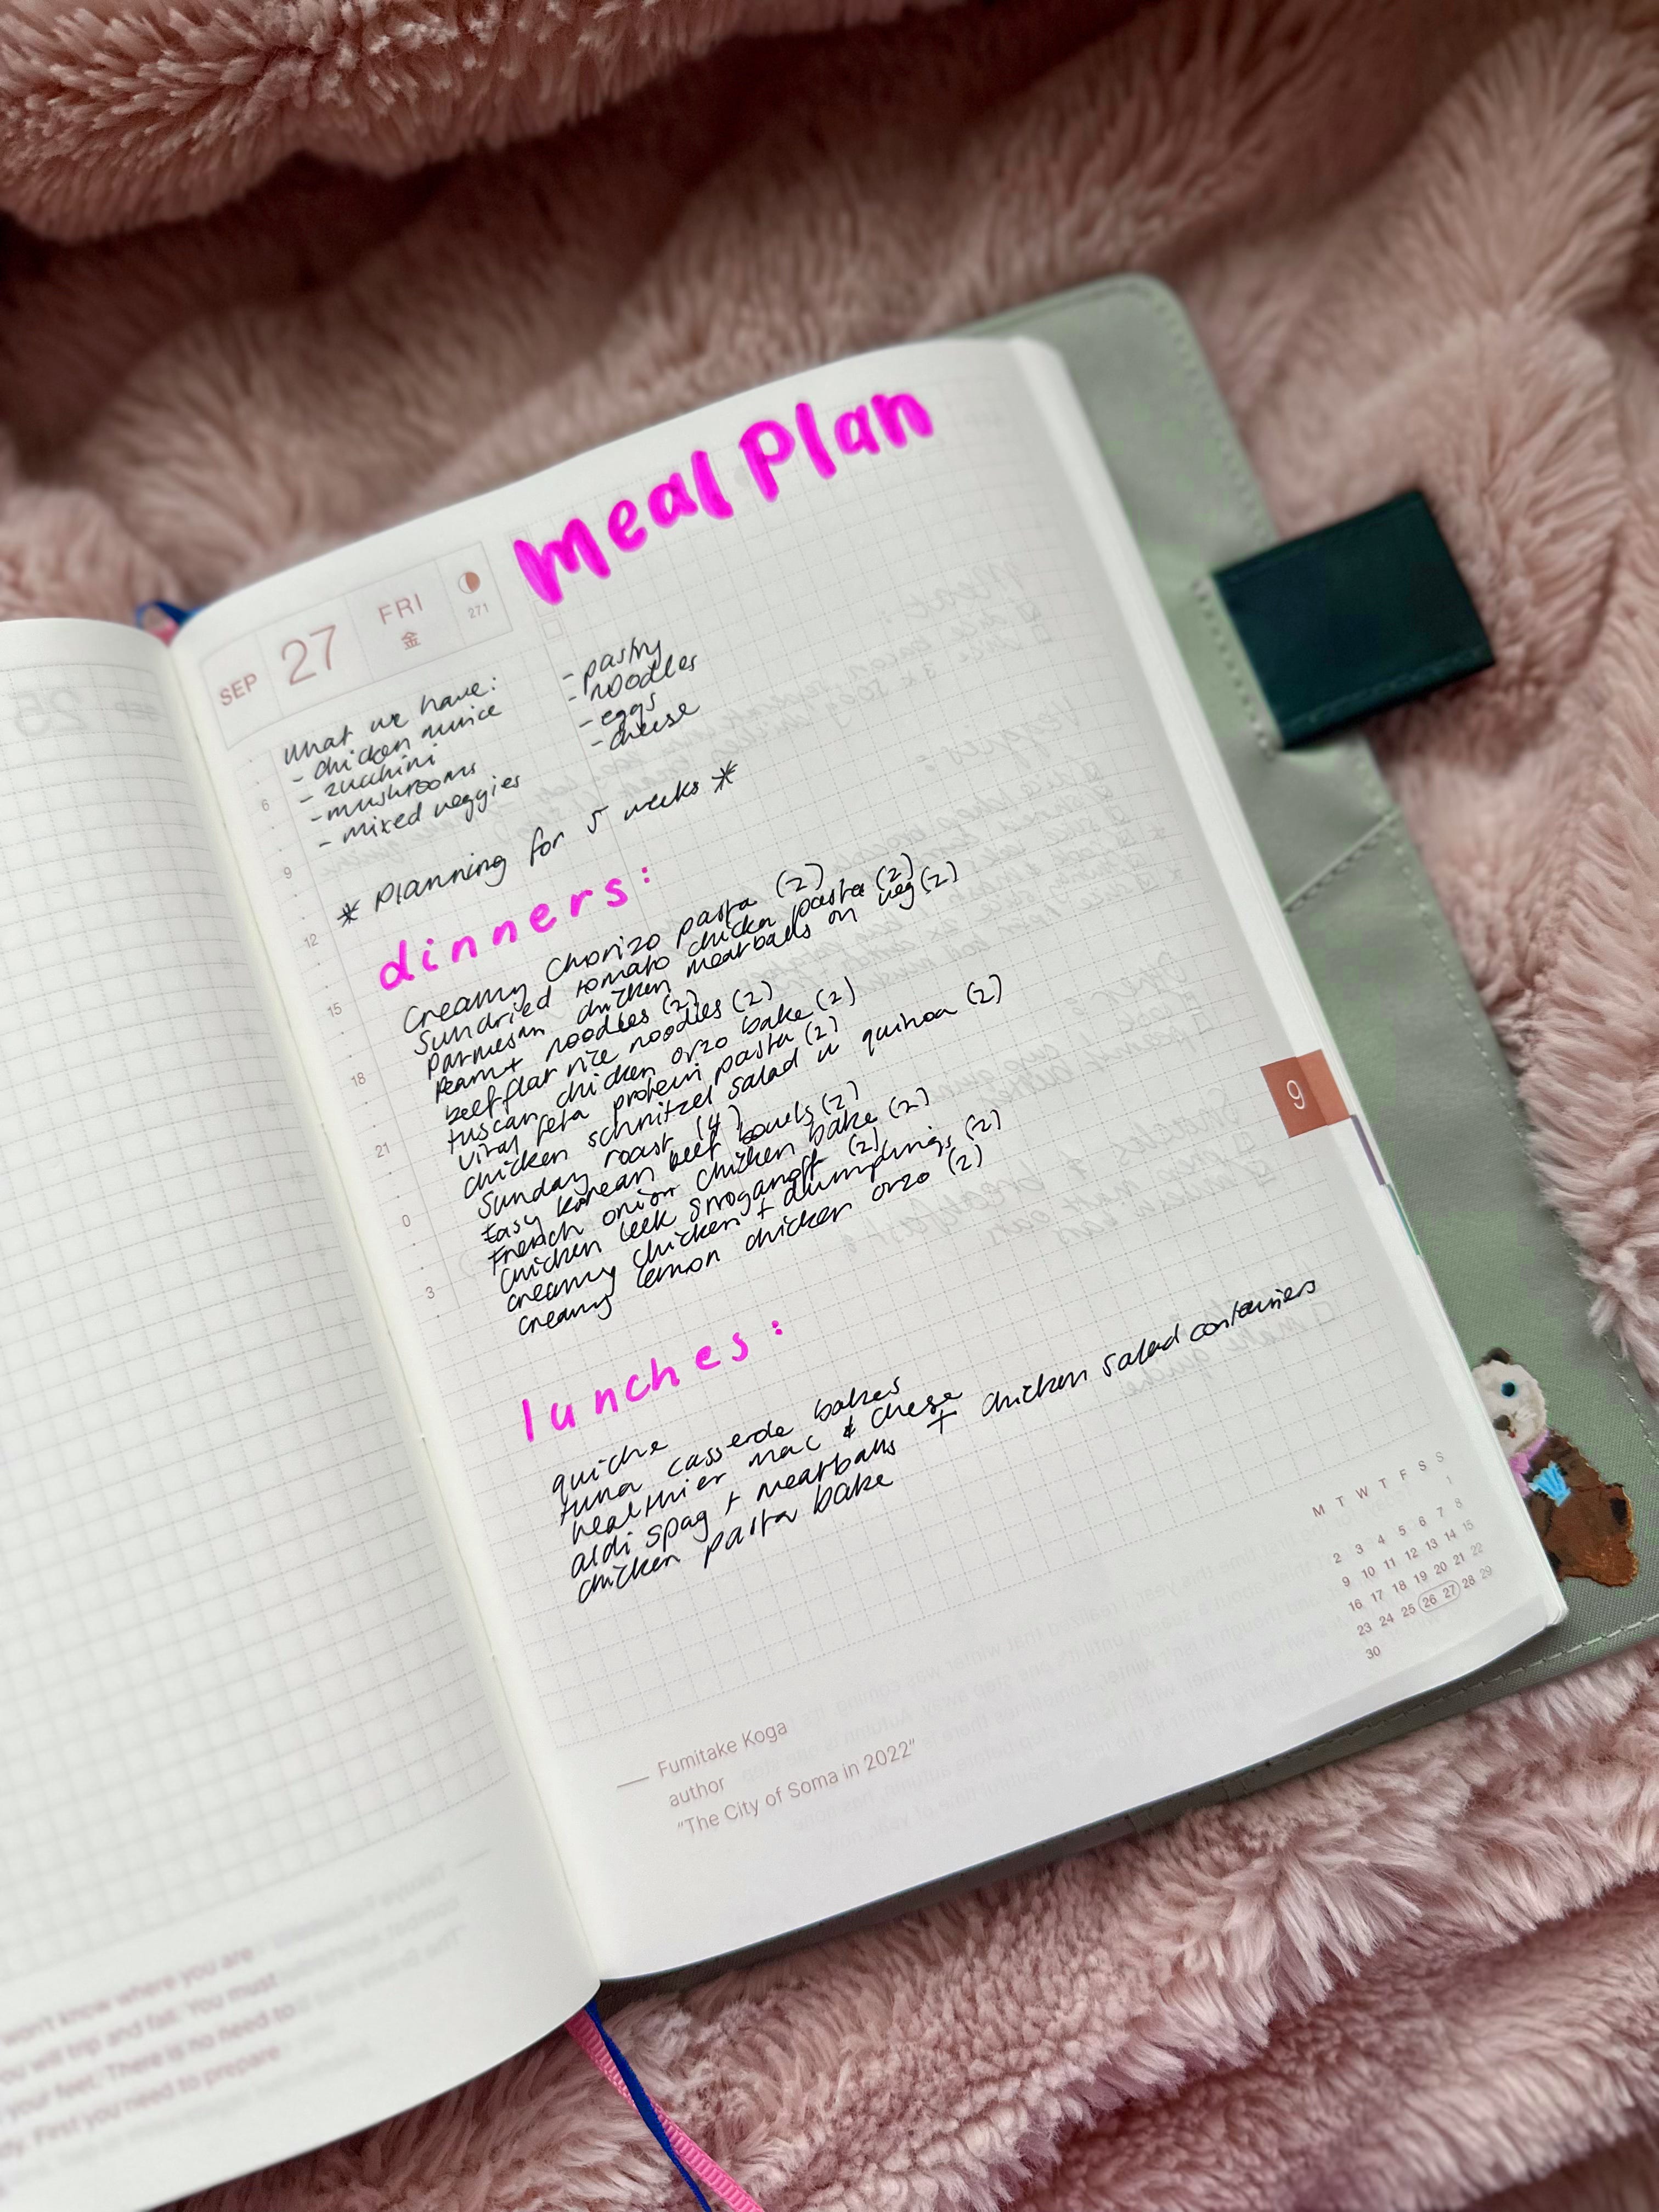 Meal Plan
SEP 27 FRI
金
271
What we have:
- chicken mince
- zucchini
- mushrooms
- mixed veggies
- pastry
- noodles
- eggs
- cheese
* Planning for 5 weeks *
dinners:
Creamy Chorizo pasta (2)
Sundried tomato chicken pasta (2)
parmesan chicken meatballs on veg (2)
Peanut noodles (2)
beef flat rice noodles (2)
tuscan chicken orzo bake (2)
viral feta protein pasta (2)
chicken schnitzel salad w quinoa (2)
Sunday roast (4)
Easy Korean beef bowls (2)
French onion chicken bake (2)
Chicken leek stroganoff (2)
creamy chicken + dumplings (2)
creamy lemon chicken orzo (2)
lunches:
quiche
tuna casserole bakes
healthier mac & cheese
aldi spag + meatballs + chicken salad containers
chicken pasta bake
6
9
12
15
18
21
0
3
9
M T W T F S S
1
2 3 4 5 6 7 8
9 10 11 12 13 14 15
16 17 18 19 20 21 22
23 24 25 26 27 28 29
30
— Fumitake Koga
author
"The City of Soma in 2022"
won't know where you are
you will trip and fall. You must
your feet. There is no need to
First you need to prepare